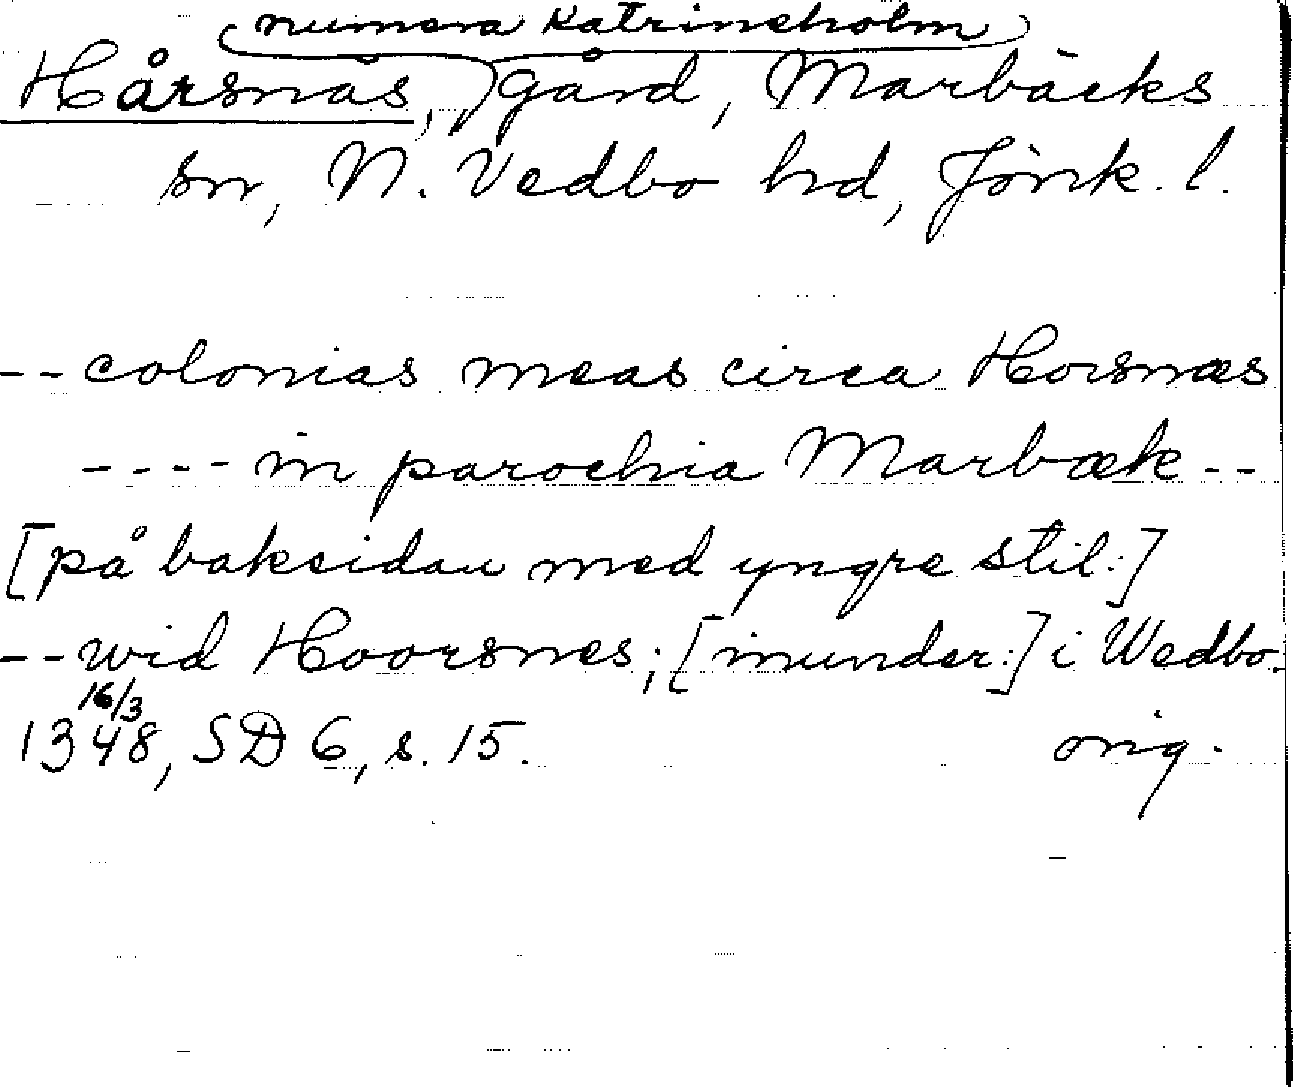 (numera Katrineholm)
Hårsnäs, gård, Marbäcks
sn, N. Vedbo hd, Jönk. l.
-- colonias meas circa Horsnæs
---- in parochia Marbæk --
[på baksidan med yngre stil:]
-- wid Hoorsnes; [inunder:] i Wedbo.
16/3
1348, SD 6, s. 15. orig.